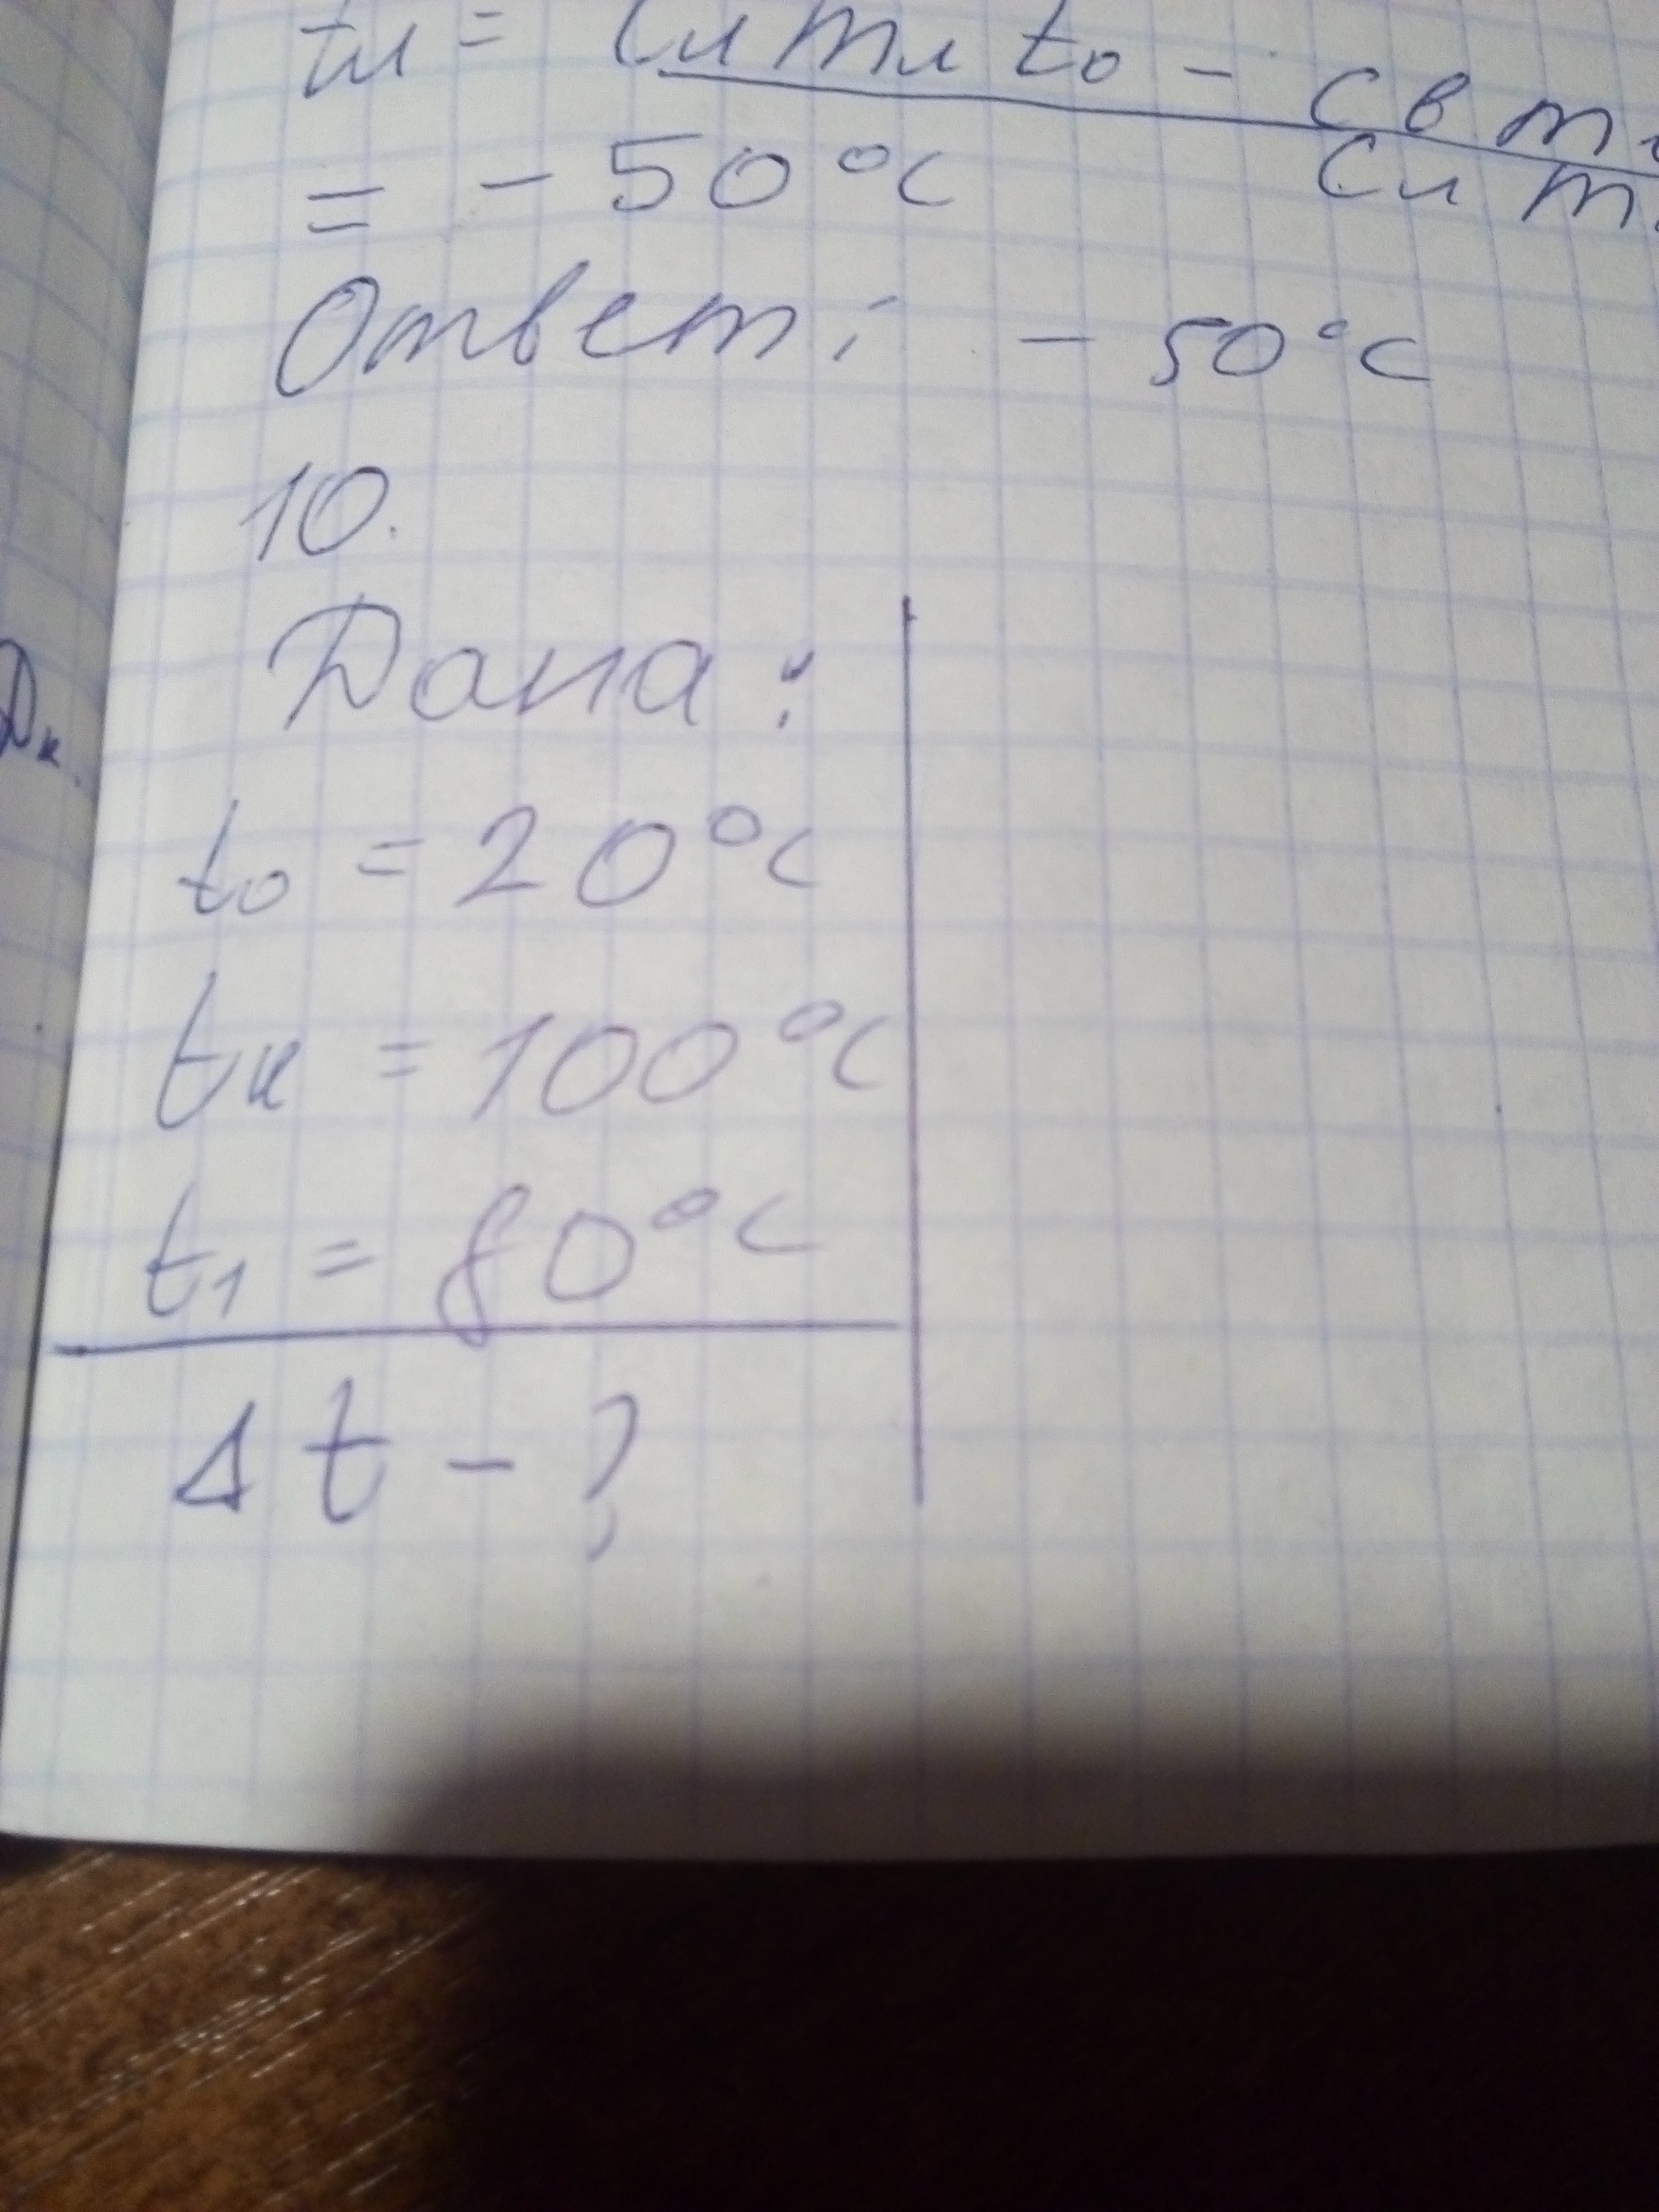 tл = Cл mл t₀ - Cв m
Cл m
= - 50°C
Ответ: - 50°C
10.
Дана:
t₀ = 20°C
tк = 100°C
t₁ = 80°C
Δt - ?